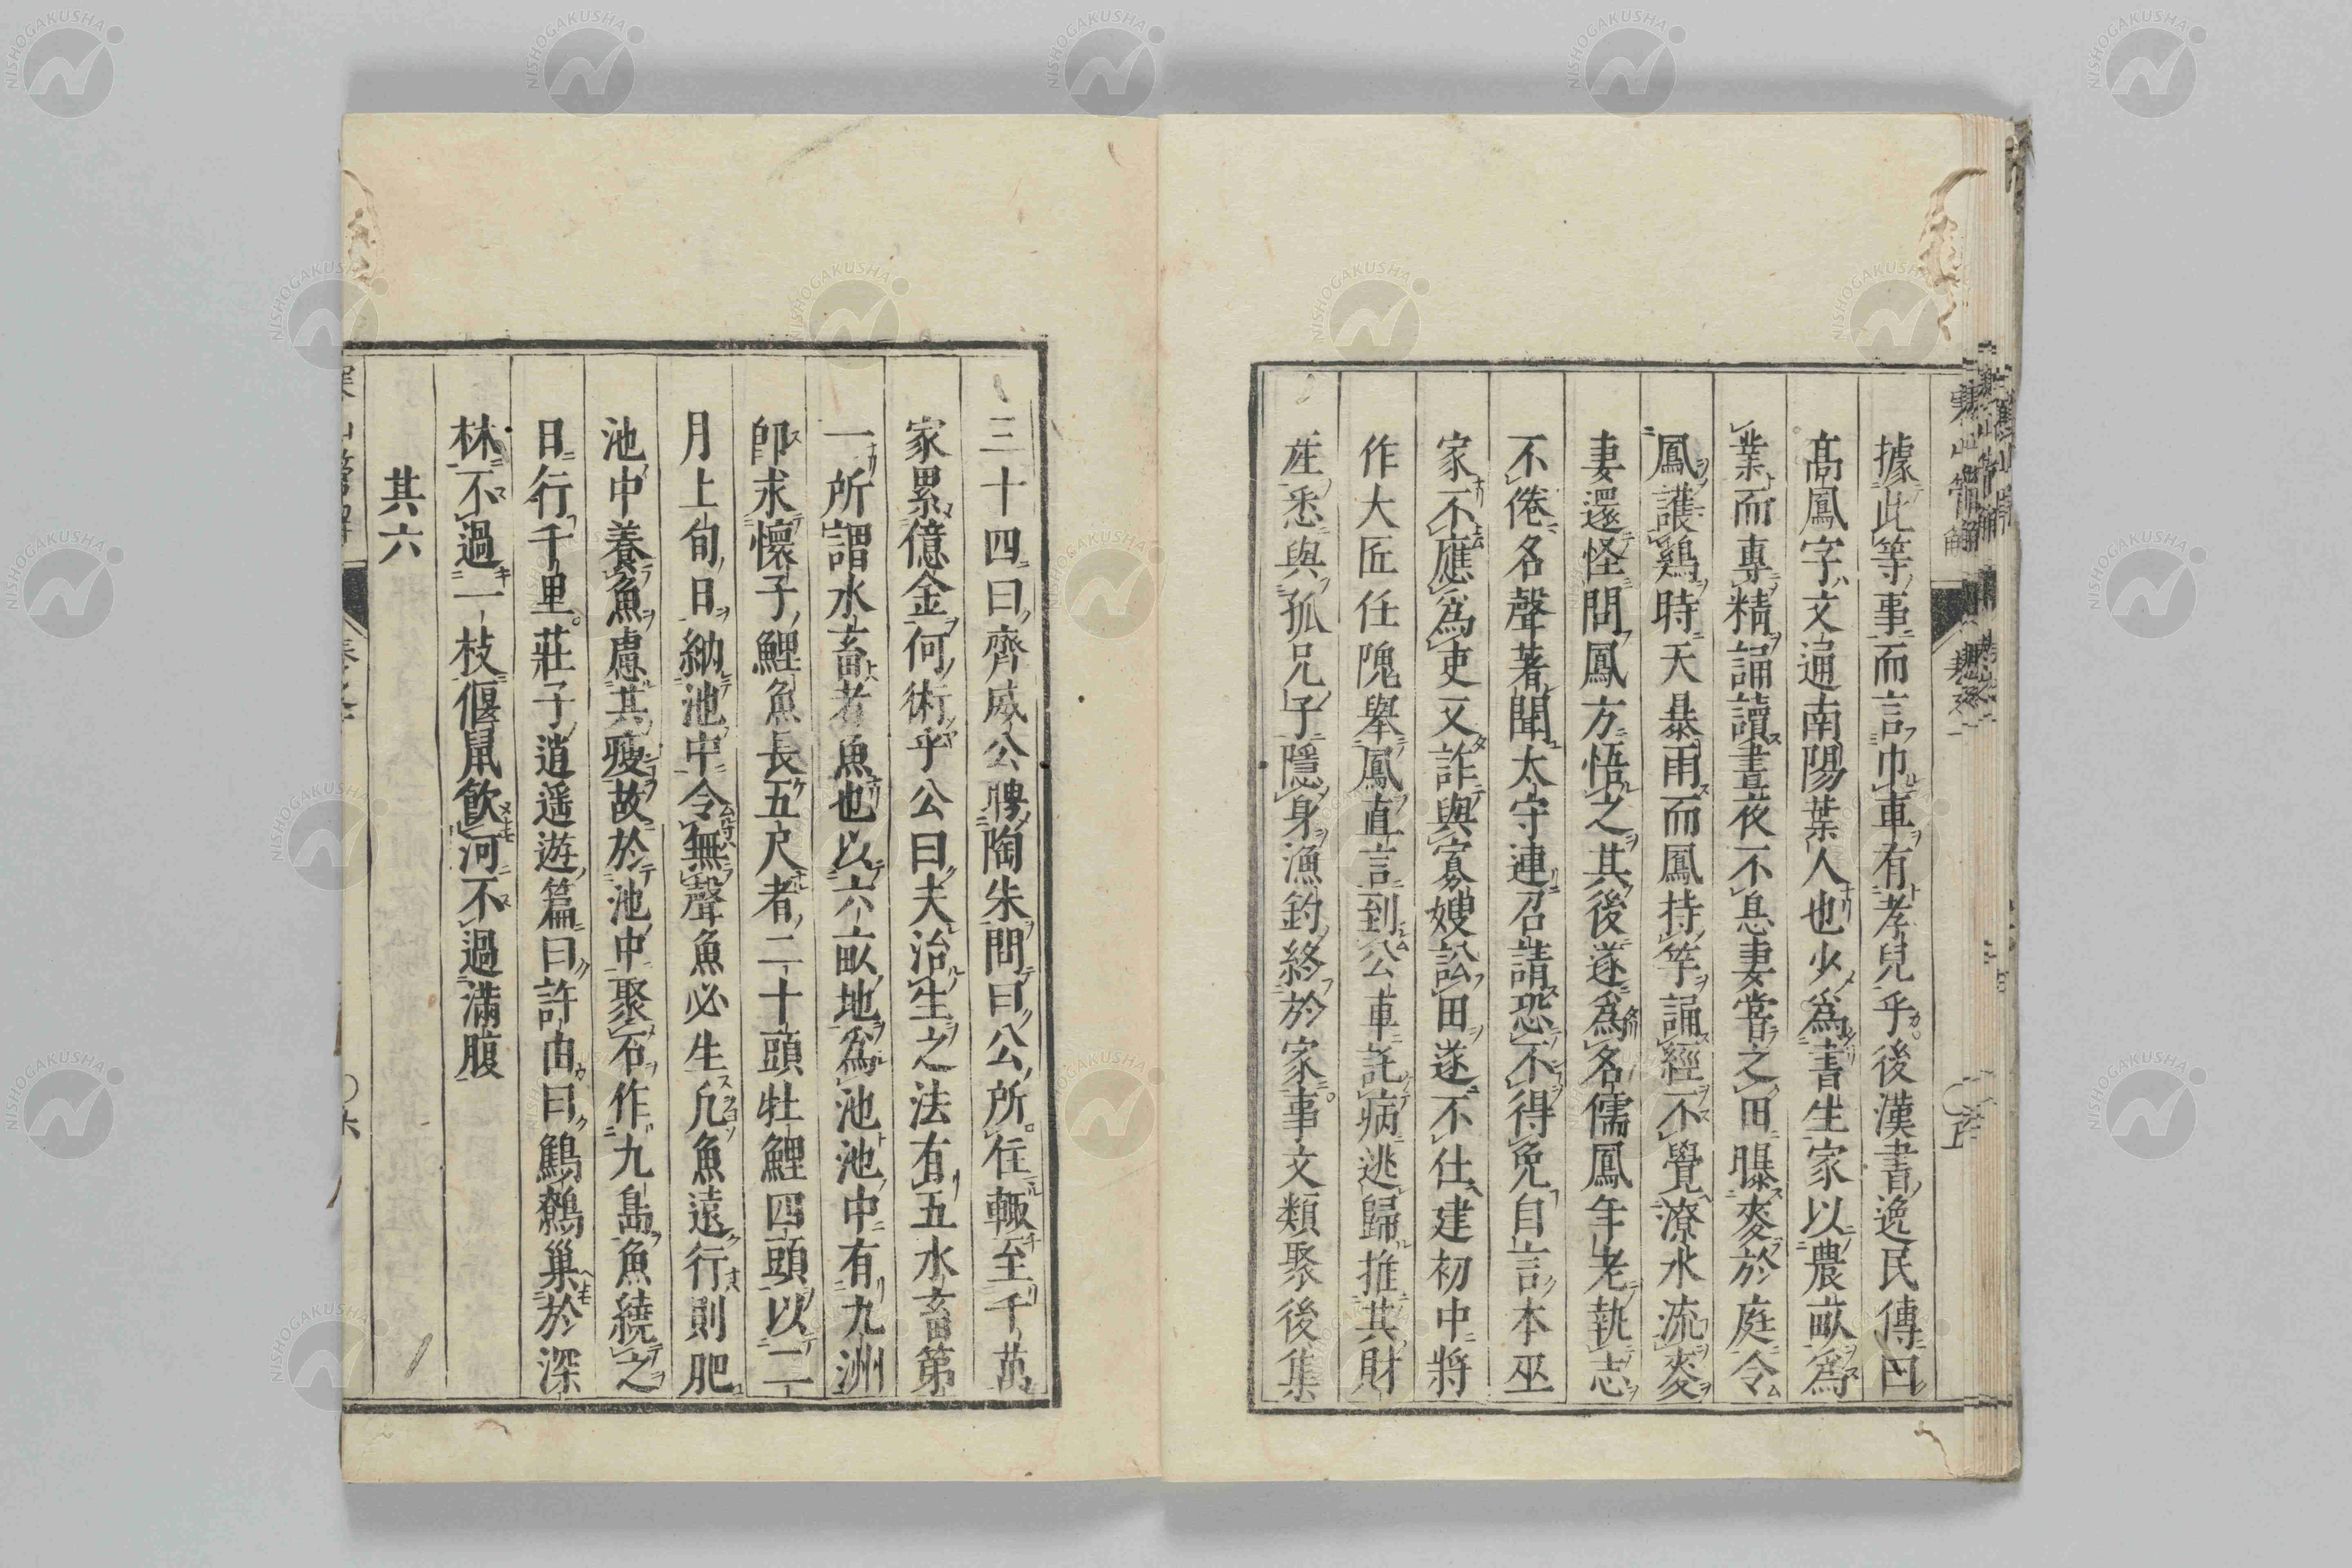 據此等事而言巾車有孝兒乎後漢書逸民傳曰
高鳳字文通南陽葉人也少爲書生家以農畝爲
業而專精誦讀晝夜不息妻嘗之田曝麥於庭令
鳳護鷄時天暴雨而鳳持竿誦經不覺潦水流麥
妻還怪問鳳方悟之其後遂爲名儒鳳年老執志
不倦名聲著聞太守連召請恐不得免自言本巫
家不應爲吏又詐與寡嫂訟田遂不仕建初中將
作大匠任隗舉鳳直言到公車託病逃歸推其財
產悉與孤兄子隱身漁釣終於家事文類聚後集
三十四曰齊威公聘陶朱問曰公所在輙至千萬
家累億金何術乎公曰夫治生之法有五水畜第
一所謂水畜者魚也以六畝地爲池池中有九洲
卽求懷子鯉魚長五尺者二十頭牡鯉四頭以二
月上旬日納池中令無聲魚必生凢魚遠行則肥
池中養魚慮其瘦故於池中聚石作九島魚繞之
日行千里莊子逍遥遊篇曰許由曰鷦鷯巢於深
林不過一枝偃鼠飲河不過滿腹
其六